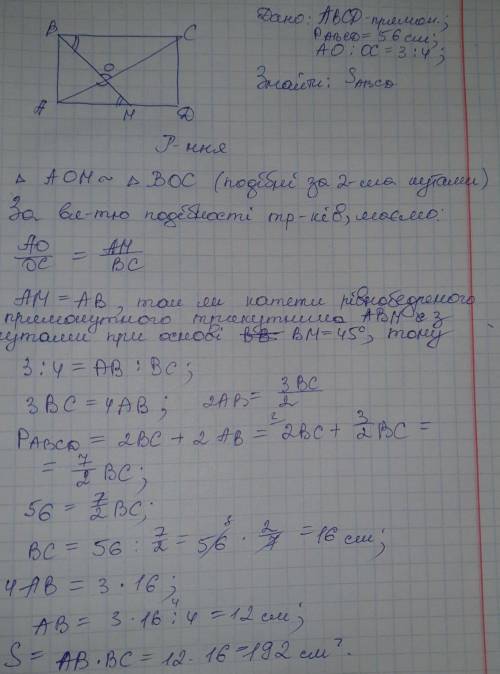 Дано: ABCD-прямок.;
PABCD = 56 см;
AO : OC = 3 : 4;
Знайти: SABCD
B C
O
A M D
Р-ння
△ AOM ~ △ BOC (подібні за 2-ма кутами)
За вл-тю подібності тр-ків, маємо:
AO/OC = AM/BC
AM = AB, так як катети рівнобедреного
прямокутного трикутника ABM з
кутами при основі BM = 45°, тому
3 : 4 = AB : BC;
3BC = 4AB; 2AB = 3BC/2
PABCD = 2BC + 2AB = 2BC + 3/2 BC =
= 7/2 BC;
56 = 7/2 BC;
BC = 56 : 7/2 = 56 · 2/7 = 16 см;
4AB = 3 · 16;
AB = 3 · 16 : 4 = 12 см;
S = AB · BC = 12 · 16 = 192 см².